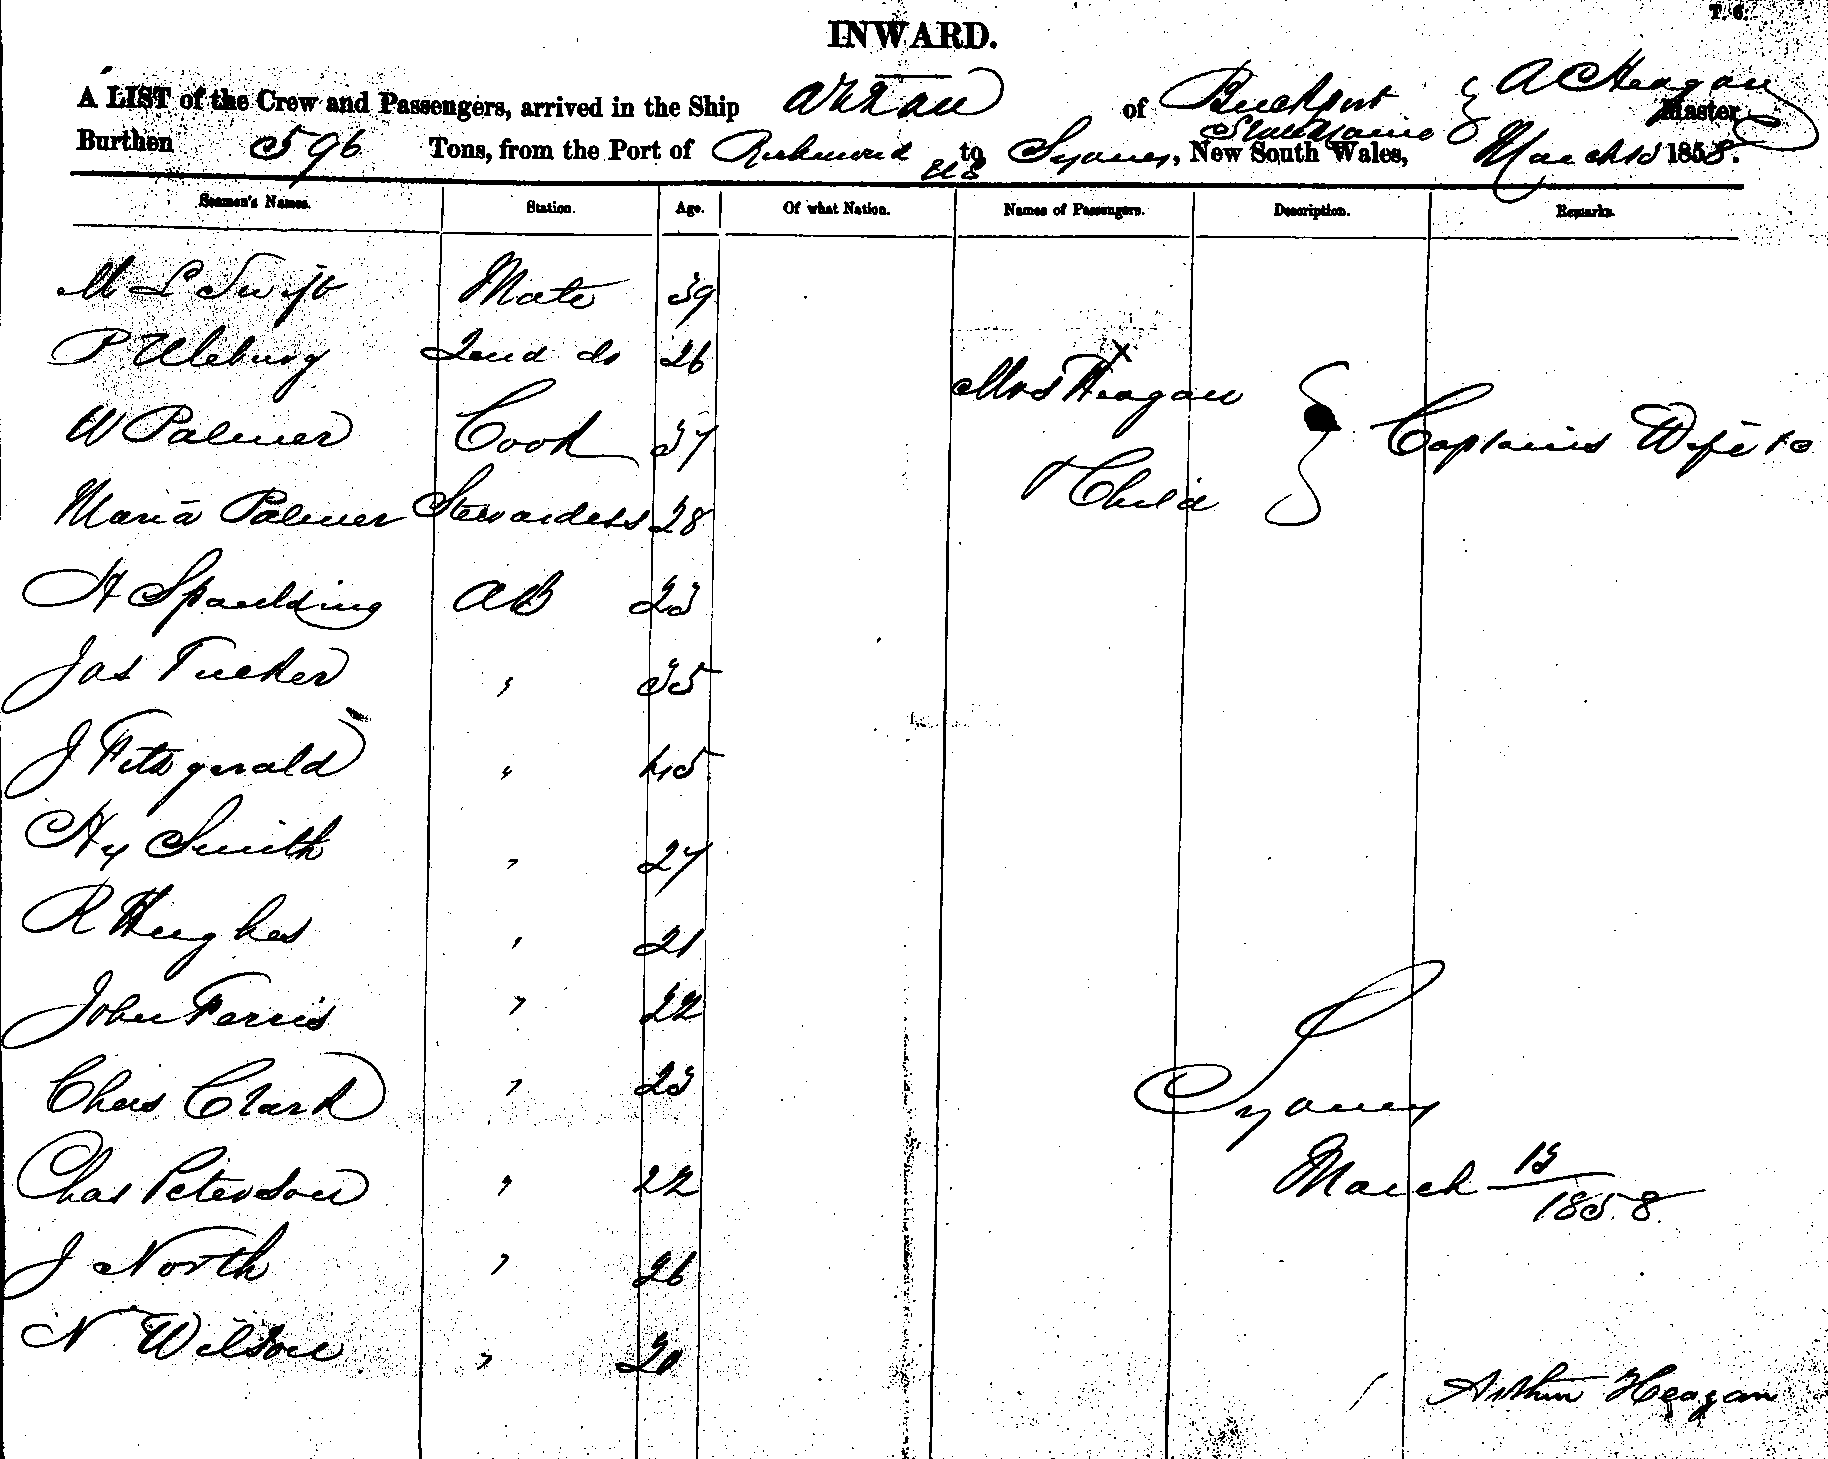 T. 6.
INWARD.
A LIST of the Crew and Passengers, arrived in the Ship of Buckport A C Heagan Master
State Maine
Burthen 596 Tons, from the Port of Richmond US to Sydney, New South Wales, March 15 1858.
Seamen's Names. Station. Age. Of what Nation. Names of Passengers. Description. Remarks.
M L Swift Mate 39
P 2nd do 26
Mrs Heagan
W Palmer Cook 37 Captains Wife
Maria Palmer Stewardess 28 + Child
H Spaulding AB 23
Jas Tucker " 35
J Fitzgerald " 45
Hy Smith " 27
R Hughes " 21
John Ferris " 22
Chas Clark " 23
Sydney
Chas Peterson " 22 March 15
1858.
J North " 26
N Wilson " 20
Arthur Heagan